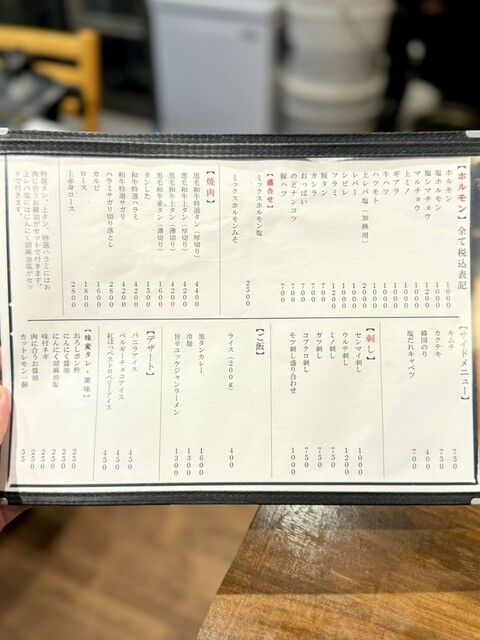 【ホルモン】全て税込表記
ホルモン 1000
塩ホルモン 1000
塩シマチョウ 1000
マルチョウ 1000
上ミノ 1000
ギアラ 1000
牛ハツ
ハツモト
上レバ塩(加熱用)
レバー
シビレ
ツラミ
豚タン
カシラ 700
おっぱい 700
のどナンコツ 700
豚ハツ 700
【盛合せ】
ミックスホルモン塩
ミックスホルモンみそ 2500
【焼肉】
黒毛和牛特選タン(厚切り) 4400
黒毛和牛上タン(厚切り) 4200
黒毛和牛上タン(薄切り) 4200
黒毛和牛並タン(薄切り) 1600
タンした 1500
和牛特選ハラミ 4200
和牛特選サガリ 4200
ハラミサガリ切り落とし 2800
カルビ 1600
ロース 1800
上赤身ロース 2800
特選タン、上タン、特選ハラミにはお
肉に合うお醤油がセットで付きます。
上レバ塩にはにんにく胡麻油塩がセッ
トで付きます。
【サイドメニュー】
キムチ 750
カクテキ 750
韓国のり 400
塩だれキャベツ 700
【刺し】
センマイ刺し 1000
ウルテ刺し 1200
ミノ刺し 750
ガツ刺し 750
コブクロ刺し 750
モツ刺し盛り合わせ 1000
【ご飯】
ライス(200g) 400
黒タンカレー 1600
冷麺 1300
旨辛ユッケジャンラーメン 1300
【デザート】
バニラアイス 450
ベルギーチョコアイス 450
紅ほっぺストロベリーアイス 450
【味変タレ・薬味】
おろしポン酢 250
にんにく醤油 250
にんにく胡麻油塩 250
味付ネギ 250
肉に合うお醤油 250
カットレモン一個 55